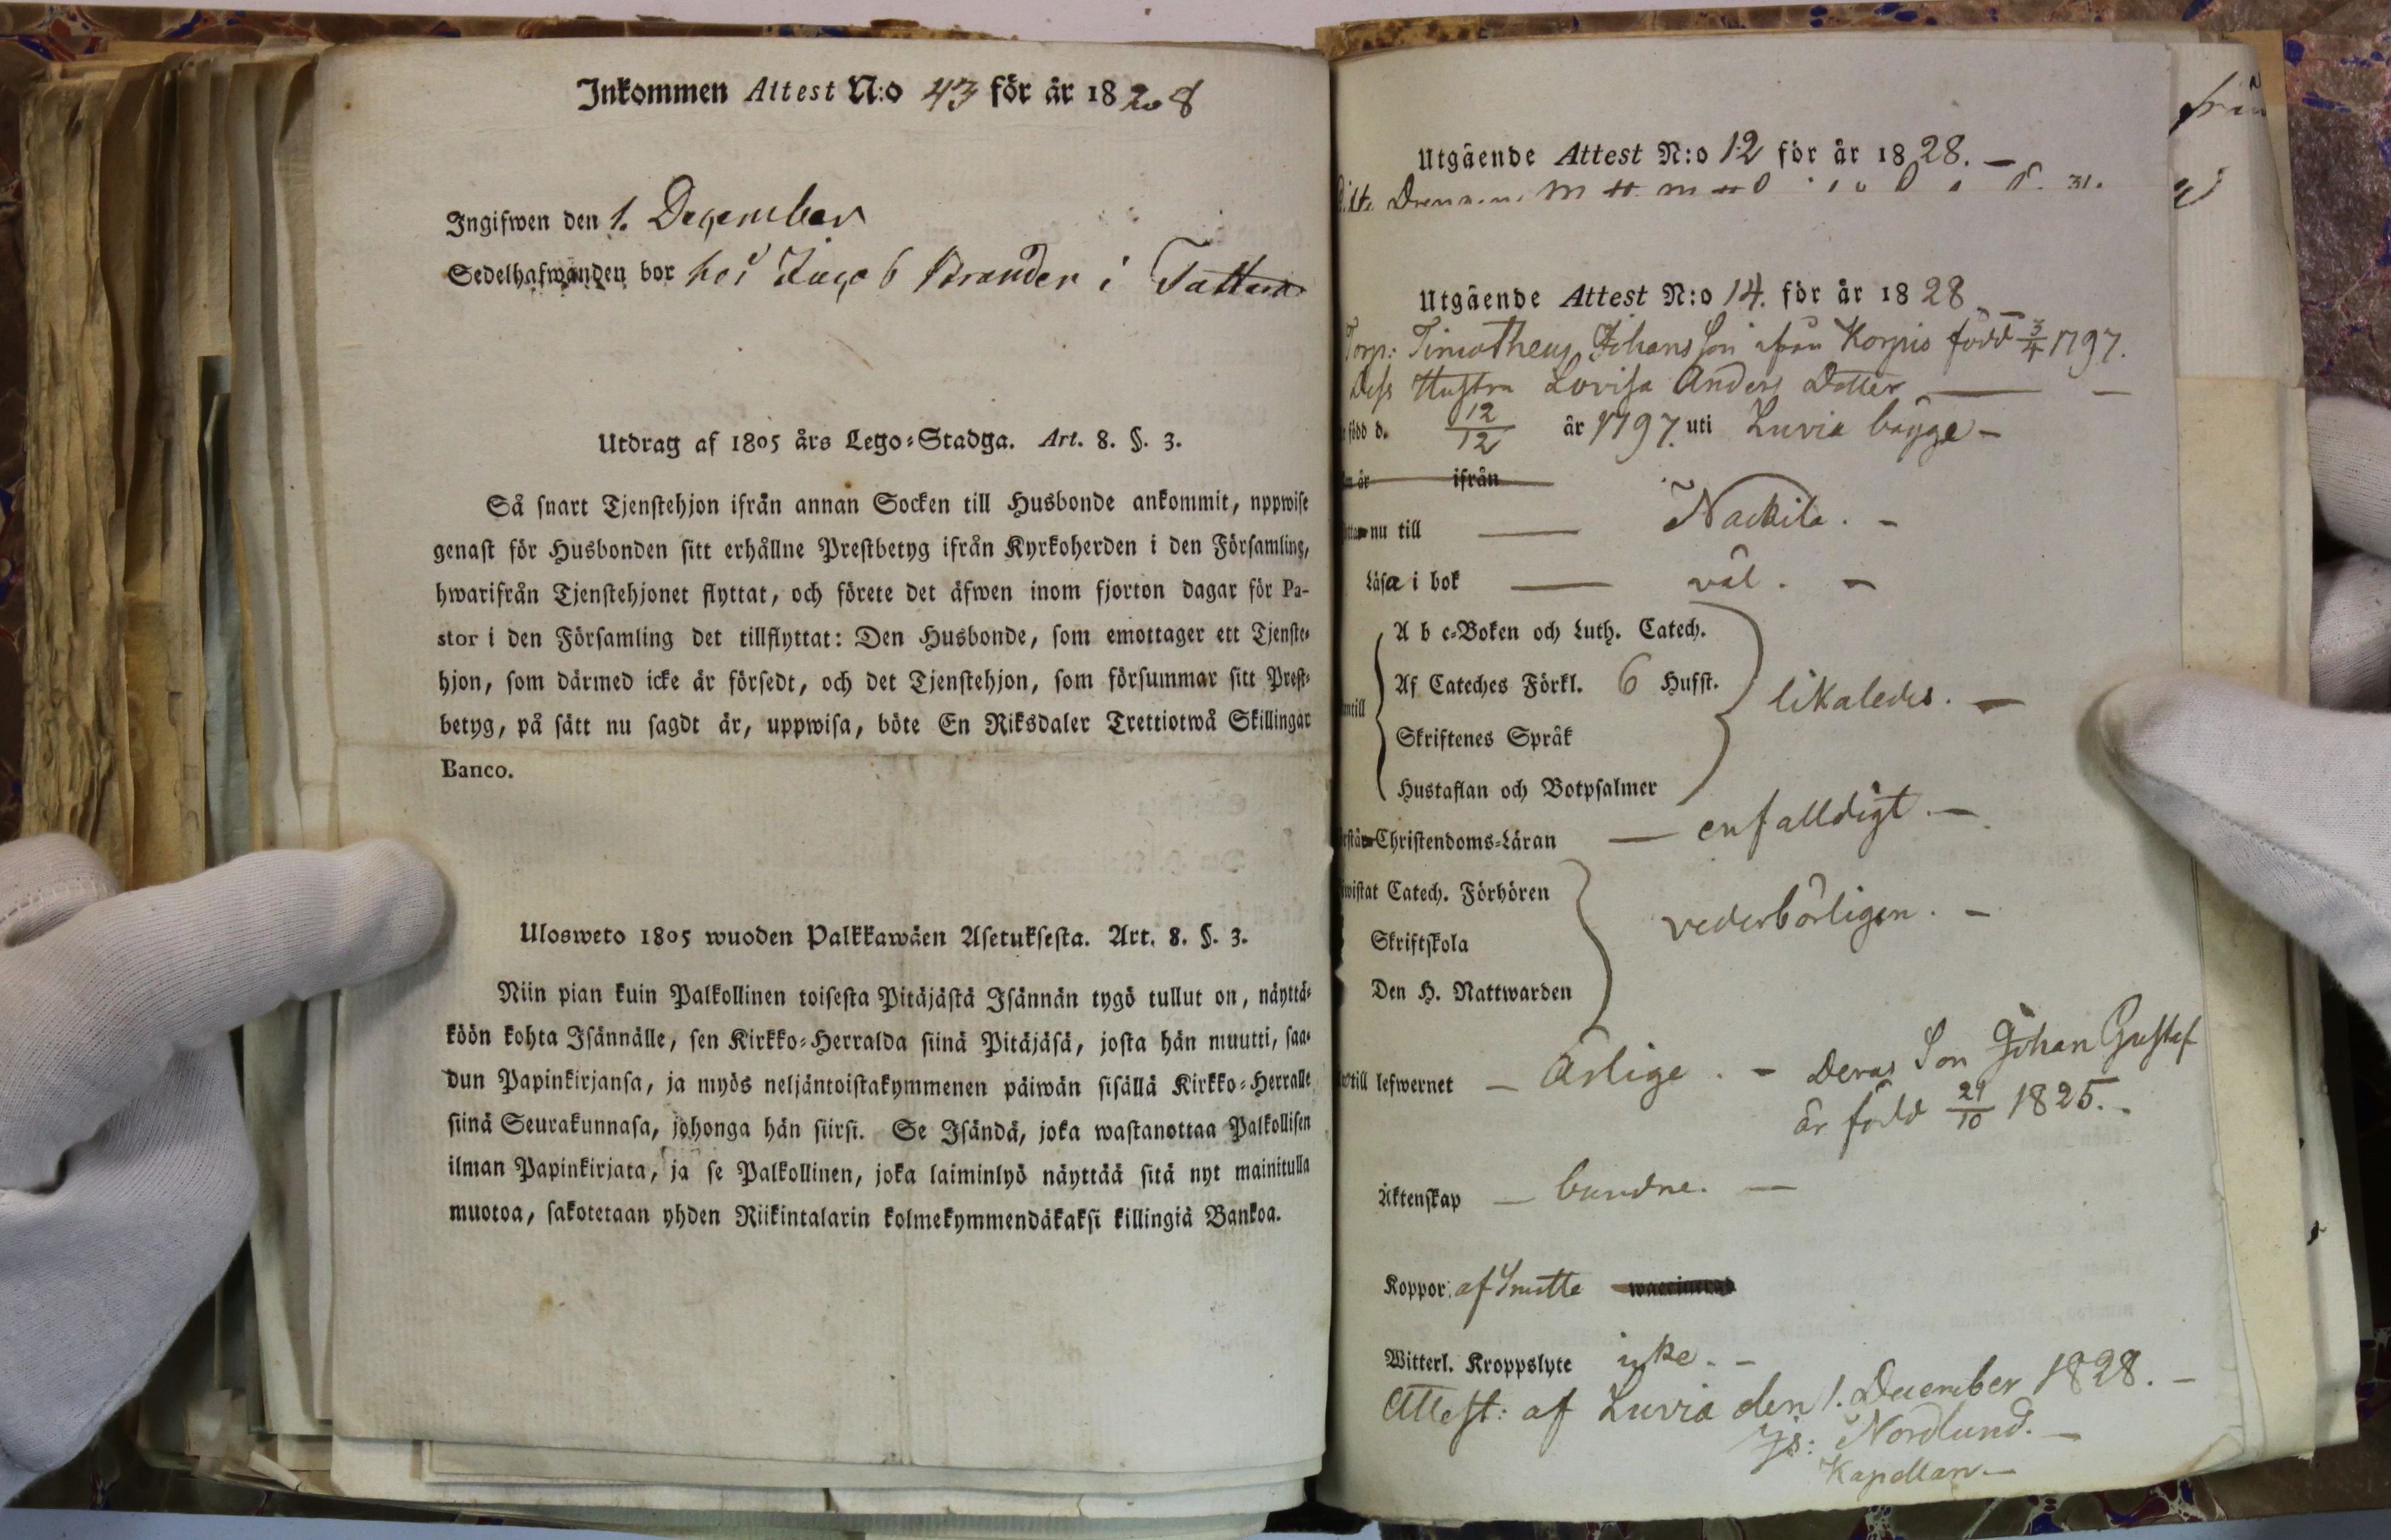 Inkommen Attest N:o 43 för år 1828
Ingifwen den 1. December
Sedelhafwanden bor hos Jacob Brander i Tattara
Utdrag af 1805 års Lego-Stadga. Art. 8. §. 3.
Så snart Tjenstehjon ifrån annan Socken till Husbonde ankommit, nppwise
genast för Husbonden sitt erhållne Prestbetyg ifrån Kyrkoherden i den Församling,
hwarifrån Tjenstehjonet flyttat, och förete det äfwen inom fjorton dagar för Pa-
stor i den Församling det tillflyttat: Den Husbonde, som emottager ett Tjenste-
hjon, som därmed icke är försedt, och det Tjenstehjon, som försummar sitt Prest-
betyg, på sätt nu sagdt är, uppwisa, böte En Riksdaler Trettiotwå Skillingar
Banco.
Ulosweto 1805 wuoden Palkkawäen Asetuksesta. Art. 8. §. 3.
Niin pian kuin Palkollinen toisesta Pitäjästä Isännän tygö tullut on, näyttä-
köön kohta Isännälle, sen Kirkko-Herralda siinä Pitäjäsä, josta hän muutti, saa-
dun Papinkirjansa, ja myös neljäntoistakymmenen päiwän sisällä Kirkko-Herralle
siinä Seurakunnasa, johonga hän siirsi. Se Isändä, joka wastanottaa Palkollisen
ilman Papinkirjata, ja se Palkollinen, joka laiminlyö näyttää sitä nyt mainitulla
muotoa, sakotetaan yhden Riikintalarin kolmekymmendäkaksi killingiä Bankoa.
Utgående Attest N:o 12 för år 1828. —
31.
Utgående Attest N:o 14. för år 1828
Torp: Timotheus Johansson ifrån Korpis född 3/4 1797.
Dess Hustru Lovisa Anders Dotter — —
född d. 12/12 år 1797. uti Luvia bägge —
år ifrån
nu till — Nackila. —
Läsa i bok — väl. —
A b c-Boken och Luth. Catech.
Af Cateches Förkl. 6 Hufst.
likaledes. —
Skriftenes Språk
Hustaflan och Botpsalmer
Christendoms-Läran — enfalldigt. —
wistat Catech. Förhören
vederbörligen. —
Skriftskola
Den H. Nattwarden
till lefwernet — Ärlige. — Deras Son Johan Gustaf
är född 29/10 1825. —
Äktenskap — bundne. —
Koppor: afSmitte
Witterl. Kroppslyte icke. —
Attest: af Luvia den 1. December 1828. —
Nordlund. —
Kapellan. —